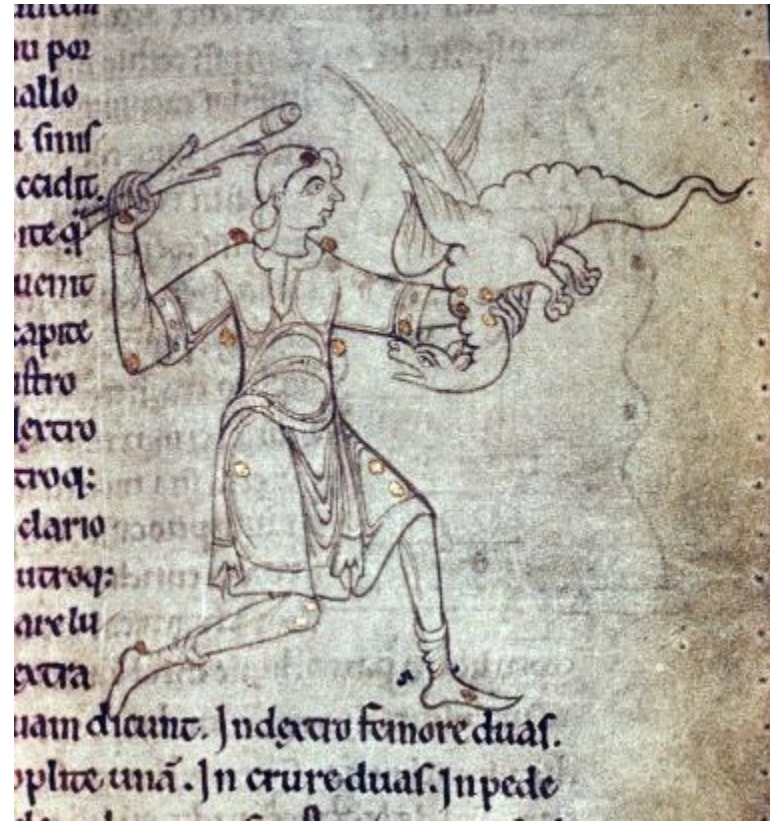 nu por
uallo
u sinis
ccidit.
iteq̄
uenit
capite
istro
dextro
troq:
clario
utroq:
are lu
extra
uam dicunt. In dextro femore duas.
oplite unā. In crure duas. In pede